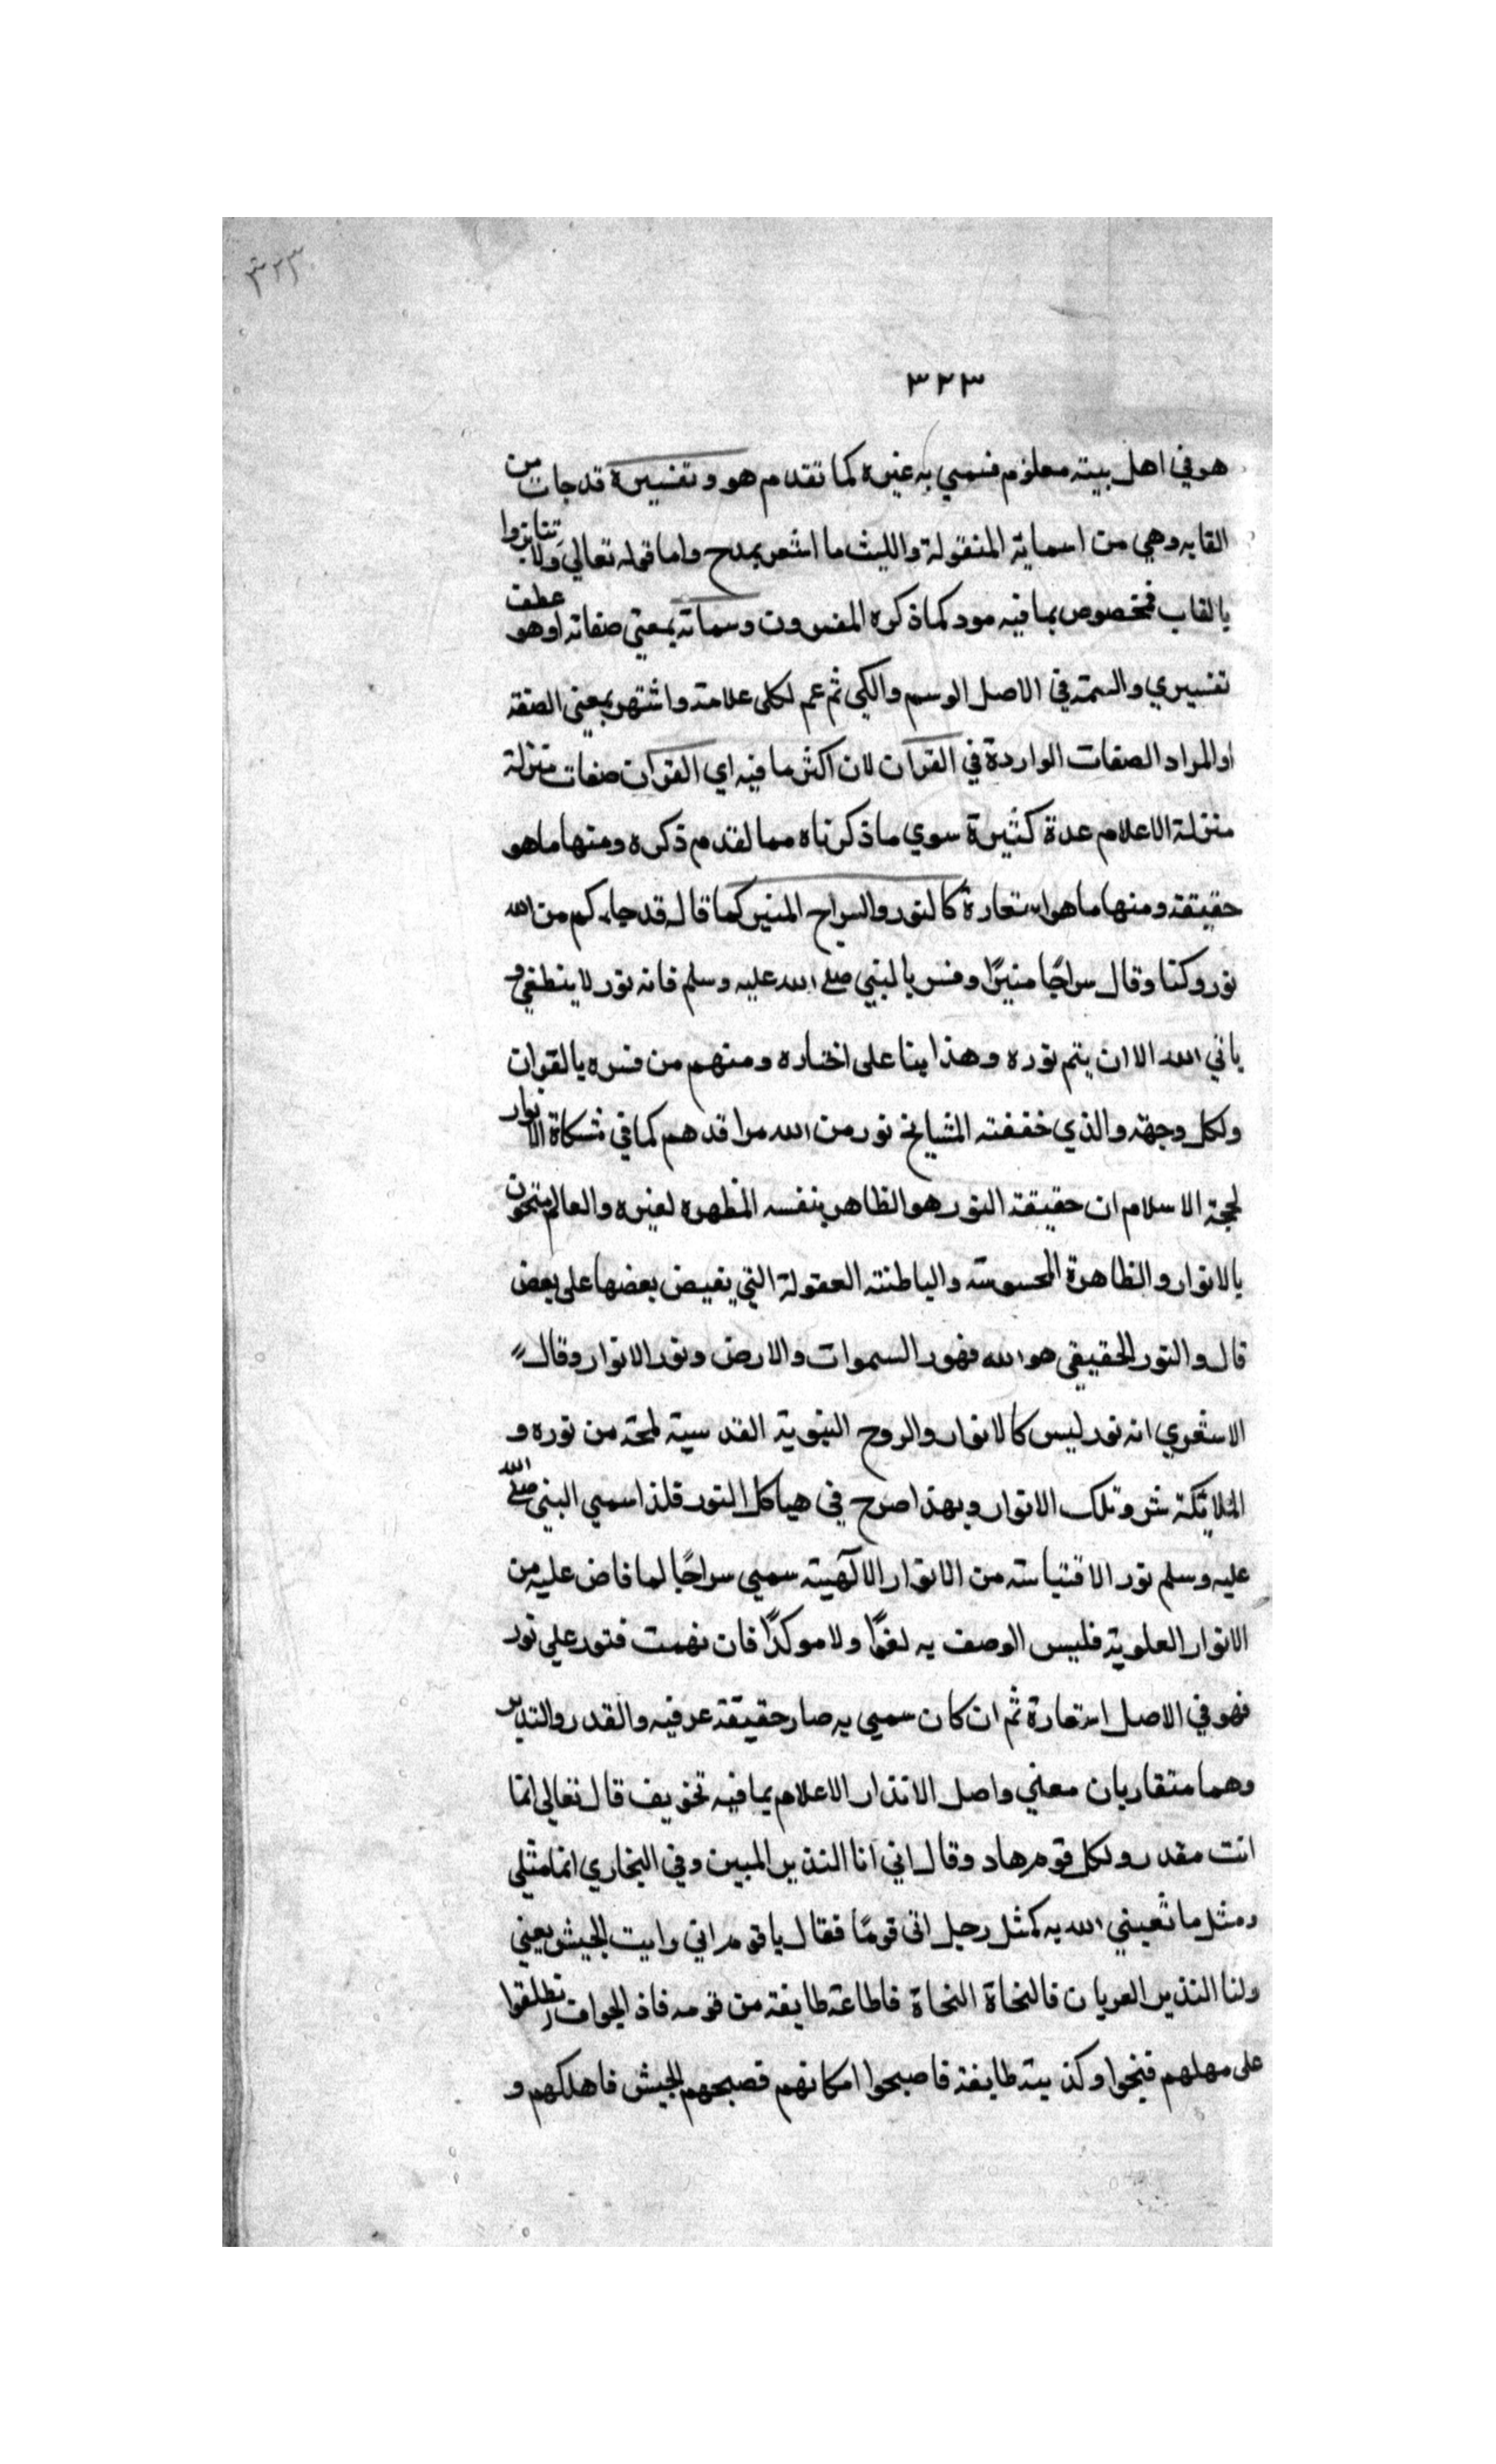 ٣٢٣
٣٢٣
هو في اهل بيته معلوم فسمي به غيره كما تقدم هو وتفسيره قد جات من
القابه وهي من اسمايه المنقولة والليث ما اشعر بمدح واما قوله تعالي ولا تنابزوا
بالقاب فمخصوص بما فيه مود كما ذكره المفسرون وسماته بمعني صفاته اوهو عطف
تفسيري والسمة في الاصل الوسم والكي ثم عم لكل علامة واشتهر بمعني الصفة
او المراد الصفات الواردة في القران لان اكثر ما فيه اي القران صفات منزلة
منزلة الاعلام عدة كثيرة سوي ما ذكرناه مما لقدم ذكره ومنها ما هو
حقيقة ومنها ما هو استعارة كالنور والسراج المنير كما قال قد جاءكم من الله
نور وكتا وقال سراجًا منيرًا وفسر بالنبي صلي الله عليه وسلم فانه نور لا ينطفي و
ياتي الله الا ان يتم نوره وهذا بنا على اختاره ومنهم من فسره بالقران
ولكل وجهة والذي خففته المشيايخ نور من الله مراقدهم كما في مشكاة الانوار
لحجة الاسلام ان حقيقة النور هو الظاهر بنفسه المظهره لغيره والعالم مشحون
بالانوار والظاهرة المحسوسة والباطنته العقولة التي يفيض بعضها على بعض
قال والنور الحقيقي هو الله فهور السموات والارض ونور الانوار وقال
الاشعري انه نور ليس كالانوار والروح النبوية القدسية لمحة من نوره و
الملايكة شر وتلك الانوار وبهذا صرح في هياكل النور فلذا سمي النبي صلي الله
عليه وسلم نور الاقتباسته من الانوار الالهيته سمي سراجًا لما فاض عليه من
الانوار العلوية فليس الوصف به لغوًا ولا موكدًا فان فهمت فنور علي نور
فهو في الاصل استعارة ثم ان كان سمي به صار حقيقة عرفيه والقدر والنذير
وهما متقاربان معني واصل الانذار الاعلام بما فيه تخويف قال تعالي انما
انت مقدر ولكل قوم هاد وقال اني انا النذير المبين وفي البخاري انما مثلي
ومثل ما تعبني الله به كمثل رجل اتى قومًا فقال يا قوم اني وايت الجيش بعيني
ولنا النذير العريان فالنجاة النجاة فاطاعة طايفة من قومه فاذ الجوافانطلقوا
على مهلهم فنجوا وكذ يته طايفة فاصبحوا امكانهم فصبحهم الجيش فاهلكهم و